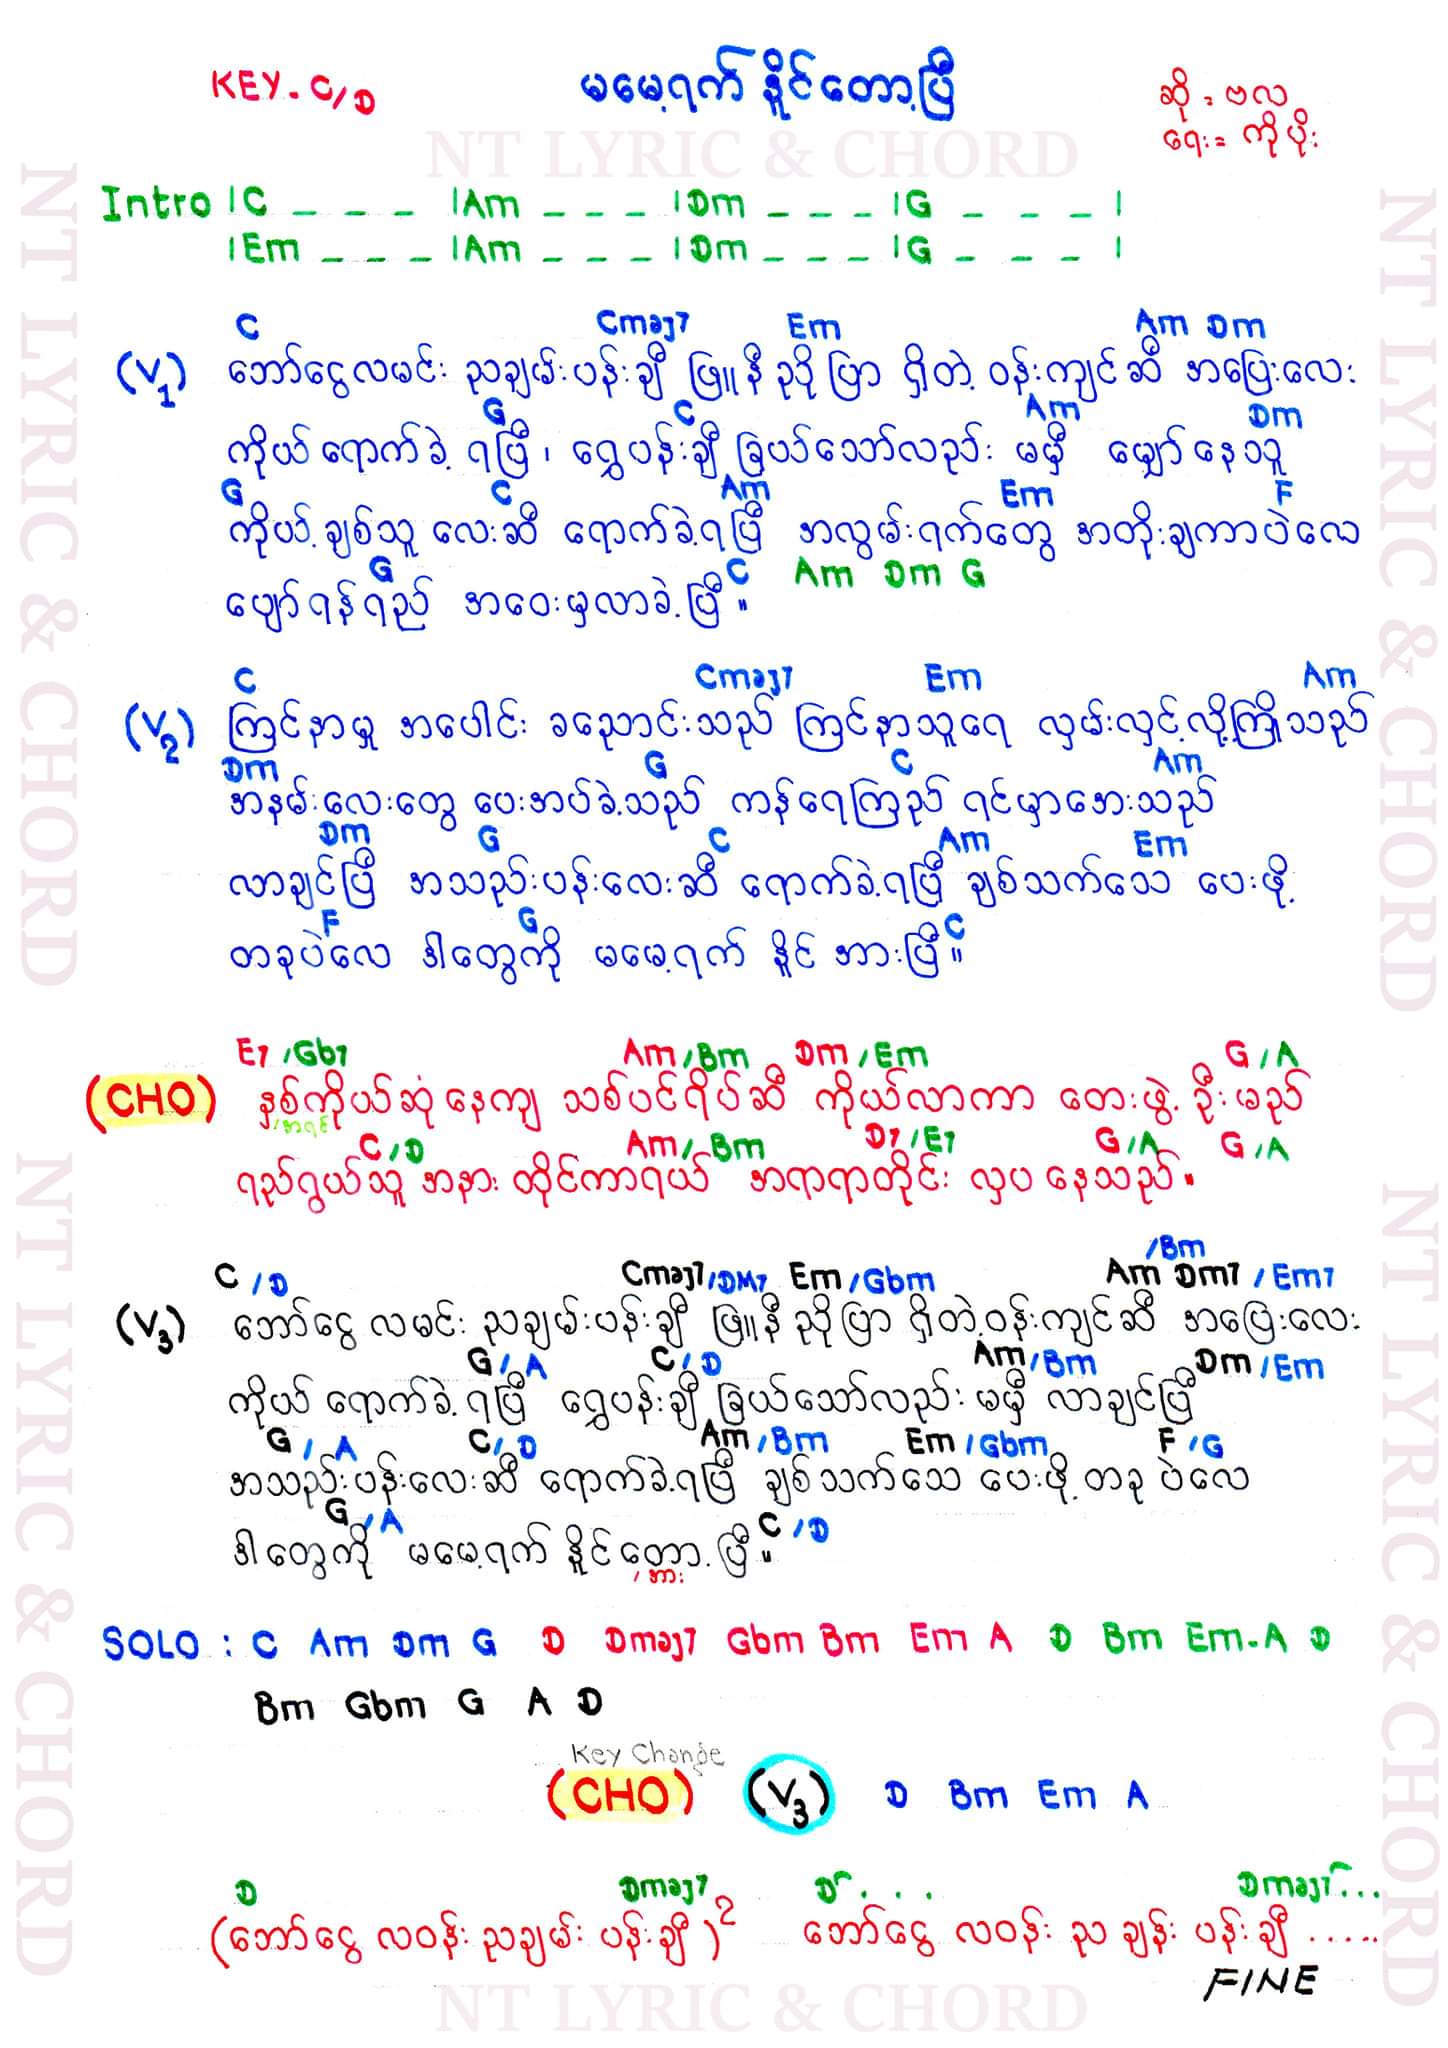 KEY - C/D
မမေ့ရက် နိုင်တော့ပြီ
ဆို = ဗလ
ရေး = ကိုပိုး
NT LYRIC & CHORD
NT LYRIC & CHORD
NT LYRIC & CHORD
Intro |C _ _ _ |Am _ _ _ |Dm _ _ _ |G _ _ _ |
|Em _ _ _ |Am _ _ _ |Dm _ _ _ |G _ _ _ |
C Cmaj7 Em Am Dm
(V1) ဘော်ငွေလမင်း ညချမ်းပန်းချီ ဖြူနီညိုပြာ ရှိတဲ့ ဝန်းကျင်ဆီ အပြေးလေး
G C Am Dm
ကိုယ်ရောက်ခဲ့ ရပြီ၊ ရွှေပန်းချီ ခြယ်သော်လည်း မမှီ မျှော်နေသူ
G C Am Em F
ကိုယ့်ချစ်သူ လေးဆီ ရောက်ခဲ့ရပြီ အလွမ်းရက်တွေ အတိုးချကာပဲလေ
G C Am Dm G
ပျော်ရန်ရည် အဝေးမှလာခဲ့ပြီ။
C Cmaj7 Em Am
(V2) ကြင်နာမှု အပေါင်း ခညောင်းသည် ကြင်နာသူရေ လှမ်းလှင့်လို့ကြိုသည်
Dm G C Am
အနမ်းလေးတွေ ပေးအပ်ခဲ့သည် ကန်ရေကြည် ရင်မှာအေးသည်
Dm G C Am Em
လာချင်ပြီ အသည်းပန်းလေးဆီ ရောက်ခဲ့ရပြီ ချစ်သက်သေ ပေးဖို့
F G C
တခုပဲလေ ဒါတွေကို မမေ့ရက် နိုင် အားပြီ။
E7/Gb7 Am/Bm Dm/Em G/A
(CHO) နှစ်ကိုယ်ဆုံနေကျ သစ်ပင်ရိပ်ဆီ ကိုယ်လာကာ တေးဖွဲ့ ဦးမည်
C/D Am/Bm D7/E7 G/A G/A
ရည်ရွယ်သူ အနား တိုင်ကာရယ် အရာရာတိုင်း လှပနေသည်။
/Bm
C/D Cmaj7/DM7 Em/Gbm Am Dm7/Em7
(V3) ဘော်ငွေလမင်း ညချမ်းပန်းချီ ဖြူနီညိုပြာ ရှိတဲ့ဝန်းကျင်ဆီ အပြေးလေး
G/A C/D Am/Bm Dm/Em
ကိုယ်ရောက်ခဲ့ ရပြီ ရွှေပန်းချီ ခြယ်သော်လည်း မမှီ လာချင်ပြီ
G/A C/D Am/Bm Em/Gbm F/G
အသည်းပန်းလေးဆီ ရောက်ခဲ့ရပြီ ချစ်သက်သေ ပေးဖို့ တခုပဲလေ
G/A C/D
ဒါတွေကို မမေ့ရက် နိုင်တော့ပြီ။
SOLO : C Am Dm G D Dmaj7 Gbm Bm Em A D Bm Em-A D
Bm Gbm G A D
Key Change
(CHO) (V3) D Bm Em A
D Dmaj7 D . . . Dmaj7...
(ဘော်ငွေ လဝန်း ညချမ်း ပန်းချီ)2 ဘော်ငွေ လဝန်း ညချန်း ပန်းချီ .....
FINE
NT LYRIC & CHORD
NT LYRIC & CHORD
NT LYRIC & CHORD